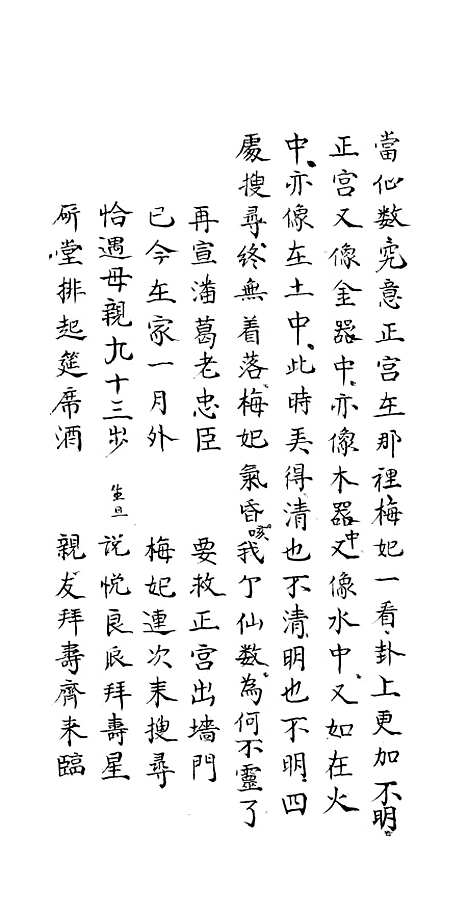 當仙数究意正宫在那裡梅妃一看卦上更加不明
正宫又像金器中亦像木器中又像水中又如在火
中亦像在土中此時美得清也不清明也不明四
處搜尋終無着落梅妃氣昏咳我个仙数為何不靈了
再宣潘葛老忠臣 要救正宫出墙門
已今在家一月外 梅妃連次来搜尋
恰遇母親九十三岁生旦 說悦良辰拜壽星
所堂排起筵席酒 親友拜壽齊来臨